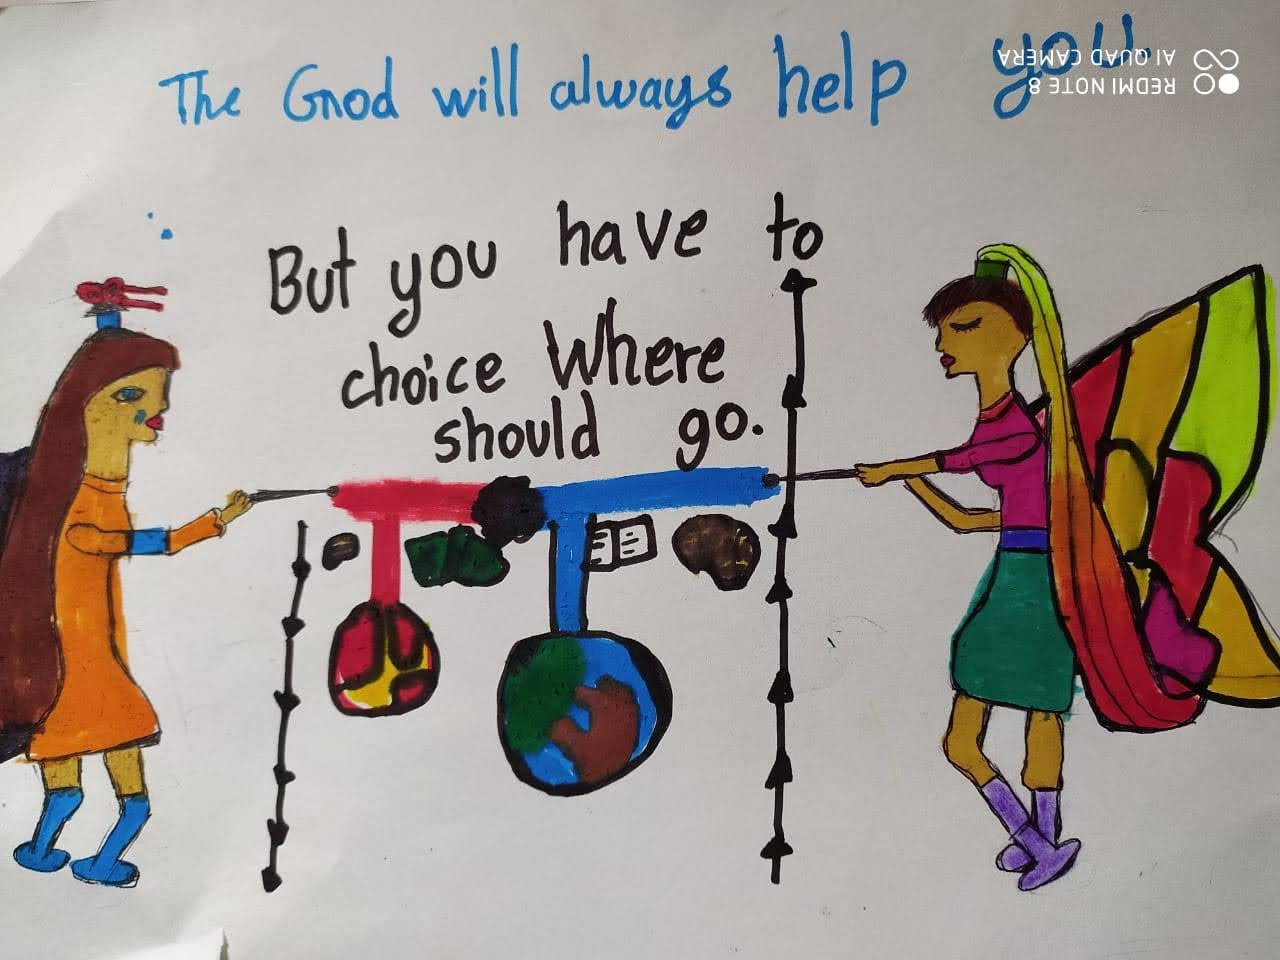 The Gnod will always help you.
But you have to
choice Where
should go.
REDMI NOTE 8
AI QUAD CAMERA